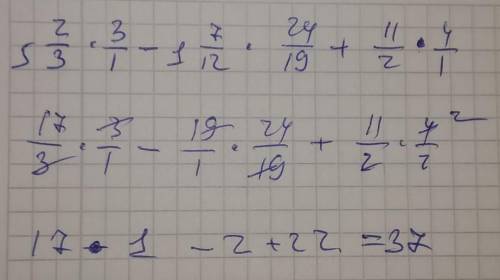 5 2/3 · 3/1 - 1 7/12 · 24/19 + 11/2 · 4/1
17/3 · 3/1 - 19/1 · 24/19 + 11/2 · 4/2 2
17 · 1 - 2 + 22 = 37